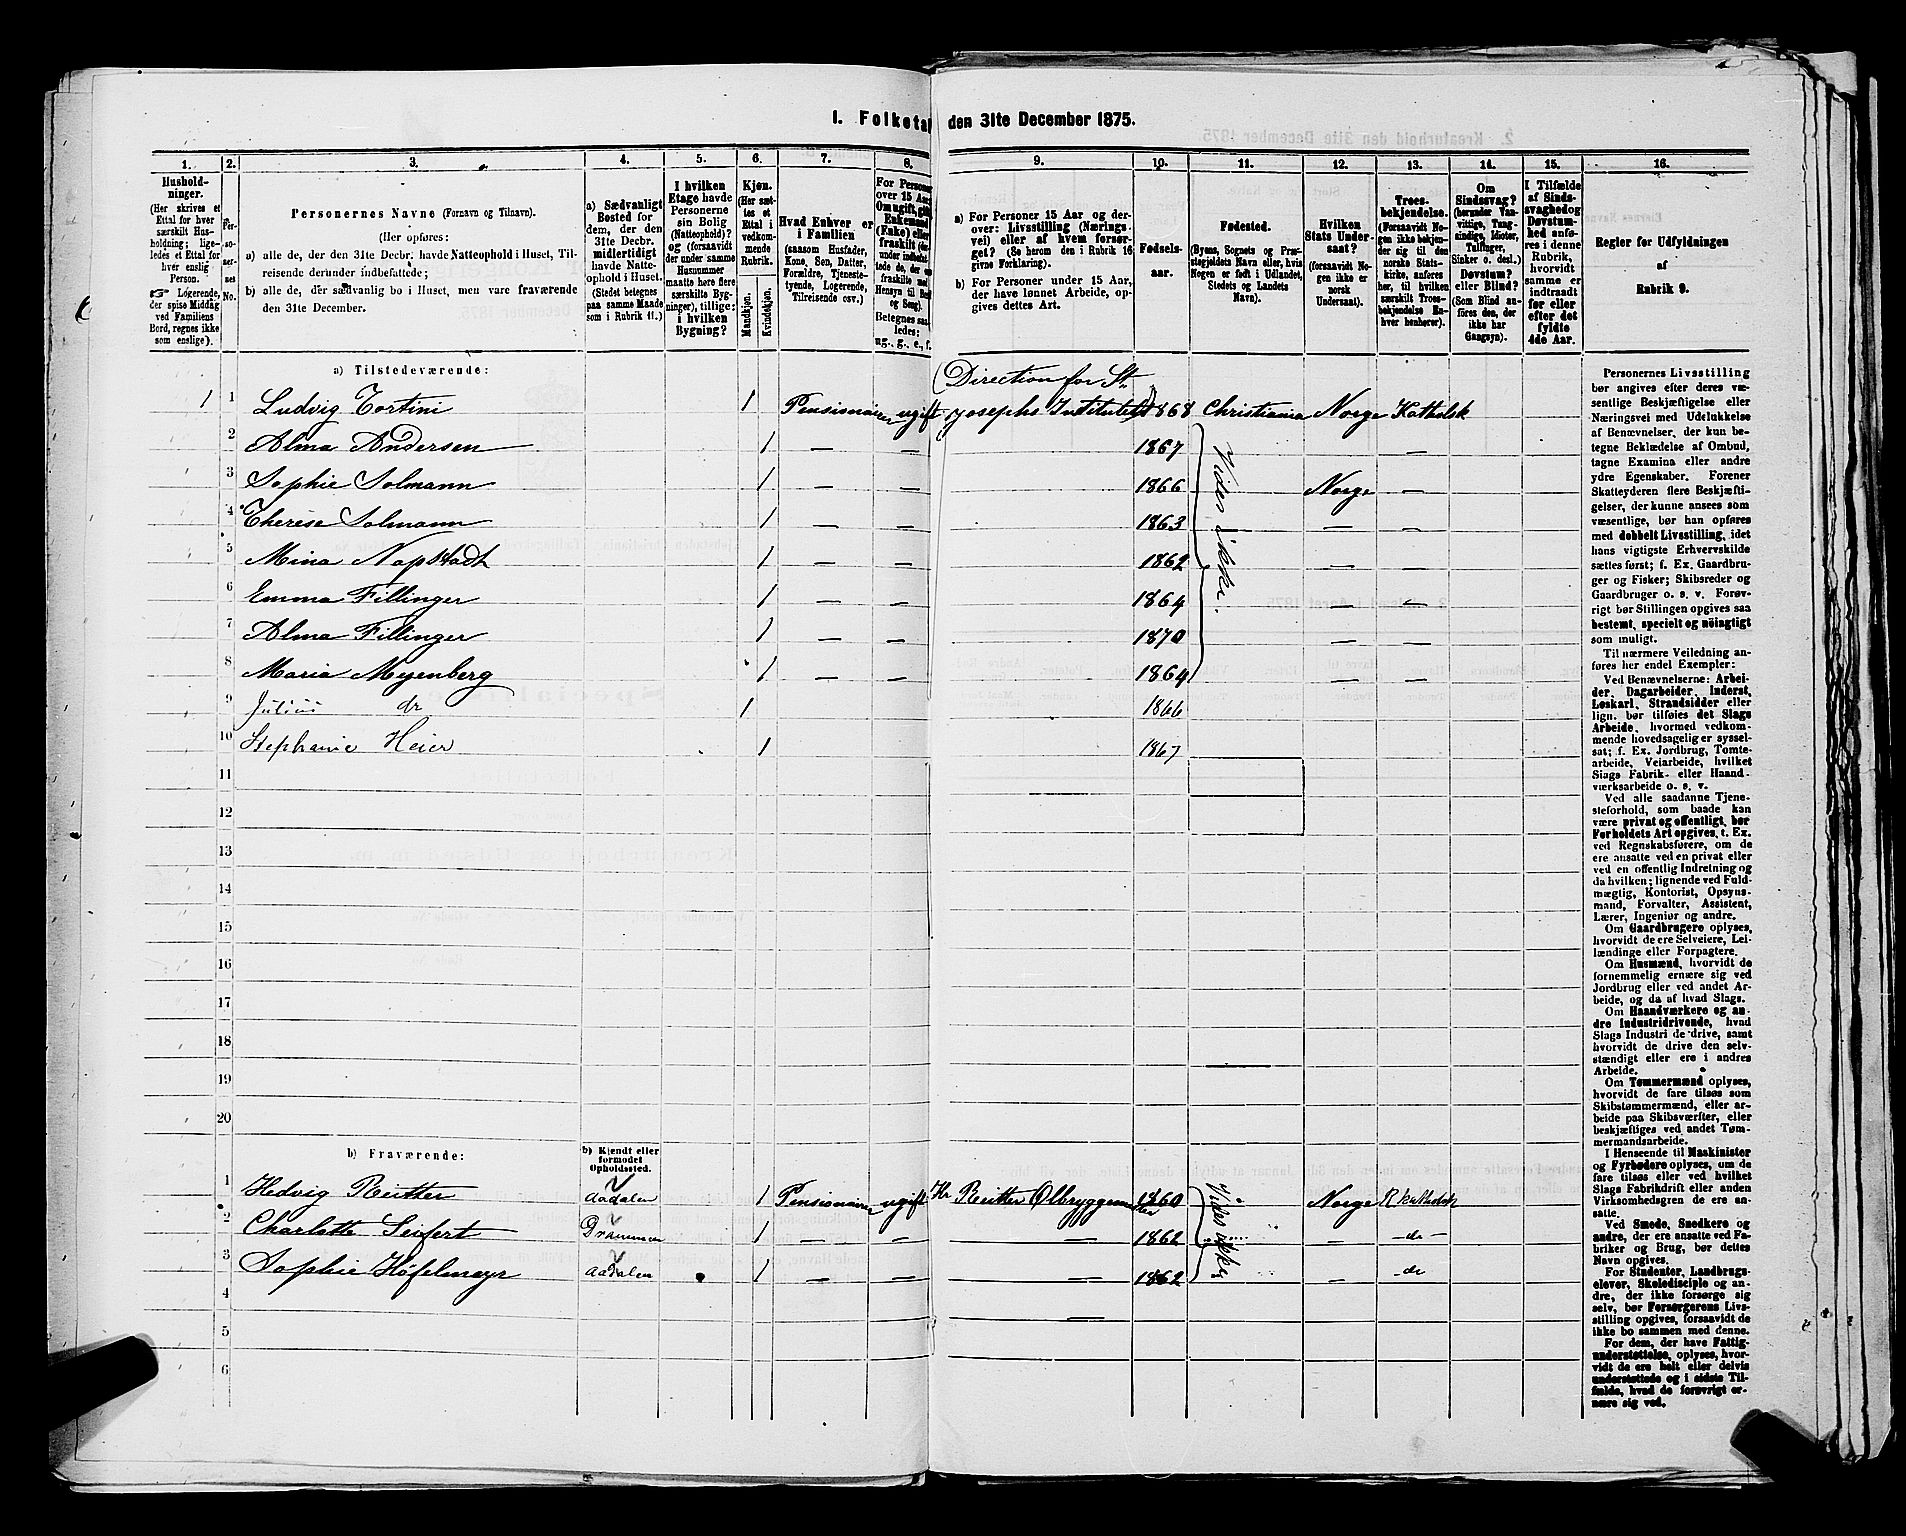 I. Folketa den 31te December 1875.
1. 2. 3. 4. 5. 6. 7. 8. 9. 10. 11. 12. 13. 14. 15. 16.
Hushold-
ninger.
(Her skrives et
Ettal for hver
særskilt Hus-
holdning; lige-
ledes et Ettal for
hver enslig
Person.
☞ Logerende,
der spise Middag
ved Familiens
Bord, regnes ikke
som enslige).
Per-
so-
ner-
nes
No.
Personernes Navne (Fornavn og Tilnavn).
(Her opføres:
a) alle de, der den 31te Decbr. havde Natteophold i Huset, Til-
reisende derunder indbefattede;
b) alle de, der sædvanlig bo i Huset, men vare fraværende
den 31te December.
a) Sædvanligt
Bosted for
dem, der den
31te Decbr.
midlertidigt
havde Natte-
ophold i Huset.
(Stedet betegnes
paa samme Maade
som i Rubrik 11.)
I hvilken
Etage havde
Personerne
sin Bolig
(Natteophold)?
og (forsaavidt
der under samme
Husnummer
maatte høre flere
særskilte Byg-
ninger), tillige:
i hvilken
Bygning?
Kjøn.
(Her sæt-
tes et
Ettal i
vedkom-
mende
Rubrik.
Mandkjøn.
Kvindekjøn.
Hvad Enhver er
i Familien
(saasom Husfader,
Kone, Søn, Datter,
Forældre, Tjeneste-
tyende, Logerende,
Tilreisende osv.)
For Personer
over 15 Aar:
Om ugift, gift,
Enkemand
(Enke) eller
fraskilt
Betegnes saa-
ledes:
ug., g., e., f.
a) For Personer 15 Aar og der-
over: Livsstilling (Nærings-
vei) eller af hvem forsør-
get? (Se herom den i Rubrik 16
givne Forklaring).
b) For Personer under 15 Aar,
der have lønnet Arbeide, op-
gives dettes Art.
Fødsels-
aar.
Fødested.
(Byens, Sognets og Præ-
stegjeldets Navn eller, hvis
Nogen er født i Udlandet,
Stedets og Landets
Navn).
Hvilken
Stats Under-
saat?
(forsaavidt No-
gen ikke er
norsk
Undersaat).
Troes-
bekjendelse.
(Forsaavidt No-
gen ikke bekjen-
der sig til den
norske Stats-
kirke, anføres
her, til hvilken
særskilt Troes-
bekjendelse En-
hver henhører).
Om
Sindssvag?
(herunder Van-
vittige, Tung-
sindige, Idioter,
Tullinger,
Sinker o. desl.)
Døvstum?
eller Blind?
(Som Blind an-
føres den, der
ikke har
Gangsyn).
I Tilfælde
af Sinds-
svaghed og
Døvstum-
hed anfø-
res i denne
Rubrik,
hvorvidt
samme er
indtraadt
før eller
efter det
fyldte
4de Aar.
Regler for Udfyldningen
af
Rubrik 9.
a) Tilstedeværende:
(Direction for St.
1 1 Ludvig Tortini 1 Pensionairer ugift Josephs Institutet) 1868 Christiania Norge Katholsk
2 Alma Andersen 1 — — 1867 Vides ikke. —
3 Sophie Solmann 1 — — 1866 Norge —
4 Therese Solmann 1 — — 1863 — —
5 Mina Napstadt 1 — — 1862 — —
6 Emma Fillinger 1 — — 1864 — —
7 Alma Fillinger 1 — — 1870 — —
8 Maria Meyenberg 1 — — 1864 — —
9 Julius do 1 1866
10 Stephanie Heier 1 1867
11
12
13
14
15
16
17
18
19
20
b) Fraværende:
b) Kjendt eller
formodet
Opholdssted.
1 Hedvig Reutter Aadalen 1 Pensionairer ugift Hr Reutter Ølbrygger 1860 Vides ikke Norge R. katholsk
2 Charlotte Seifert Drammen 1 — — — 1862 — — do —
3 Sophie Höfelmayr Aadalen 1 — — — 1862 — — do
4 —
5
6
Personernes Livsstilling
bør angives efter deres væ-
sentlige Beskjæftigelse eller
Næringsvei med Udelukkelse
af Benævnelser, der kun be-
tegne Beklædelse af Ombud,
tagne Examina eller andre
ydre Egenskaber. Forener
Skatteyderen flere Beskjæfti-
gelser, der kunne ansees som
væsentlige, bør han opføres
med dobbelt Livsstilling, idet
hans vigtigste Erhvervskilde
sættes først; f. Ex. Gaardbru-
ger og Fisker; Skibsreder og
Gaardbruger o. s. v. Forøv-
rigt bør Stillingen opgives saa
bestemt, specielt og nöiagtigt
som muligt.
Til nærmere Veiledning an-
føres her endel Exempler:
Ved Benævnelserne: Arbei-
der, Dagarbeider, Inderst,
Løskarl, Strandsidder eller
lign. bør tilføies det Slags
Arbeide, hvormed vedkom-
mende hovedsagelig er syssel-
sat; f. Ex. Jordbrug, Tomte-
arbeide, Veiarbeide, hvilket
Slags Fabrik- eller Haand-
værksarbeide o. s. v.
Ved alle saadanne Tjene-
steforhold, som baade kan
være privat og offentligt, bør
Forholdets Art opgives, t. Ex.
ved Regnskabsførere, om de
ere ansatte ved en privat eller
ved en offentlig Indretning og
da hvilken; lignende ved Fuld-
mægtig, Kontorist, Opsyns-
mand, Forvalter, Assistent,
Lærer, Ingeniør og andre.
Om Gaardbrugere oplyses,
hvorvidt de ere Selveiere, Lei-
lændinge eller Forpagtere.
Om Husmænd, hvorvidt de
fornemmelig ernære sig ved
Jordbrug eller ved andet Ar-
beide, og da af hvad Slags.
Om Haandværkere og an-
dre Industridrivende, hvad
Slags Industri de drive, samt
hvorvidt de drive den selv-
stændigt eller ere i andres
Arbeide.
Om Tømmermænd oplyses,
hvorvidt de fare tilsøs som
Skibstømmermænd, eller ar-
beide paa Skibsværfter, eller
beskjæftiges ved andet Tøm-
mermandsarbeide.
I Henseende til Maskinister
og Fyrbødere oplyses, om de
fare tilsøs eller ved hvilket
Slags Fabrikdrift eller anden
Virksomhedsgren de ere an-
satte.
Ved Smede, Snedkere og
andre, der ere ansatte ved Fa-
briker og Brug, bør dettes
Navn opgives.
For Studenter, Landbrugs-
elever, Skoledisciple og an-
dre, der ikke forsørge sig
selv, bør Forsørgerens Livs-
stilling opgives, forsaavidt de
ikke bo sammen med denne.
For dem, der have Fattig-
understøttelse, oplyses, hvor-
vidt de ere helt eller delvis
understøttede og i sidste Til-
fælde, hvad de forøvrigt er-
nære sig ved.